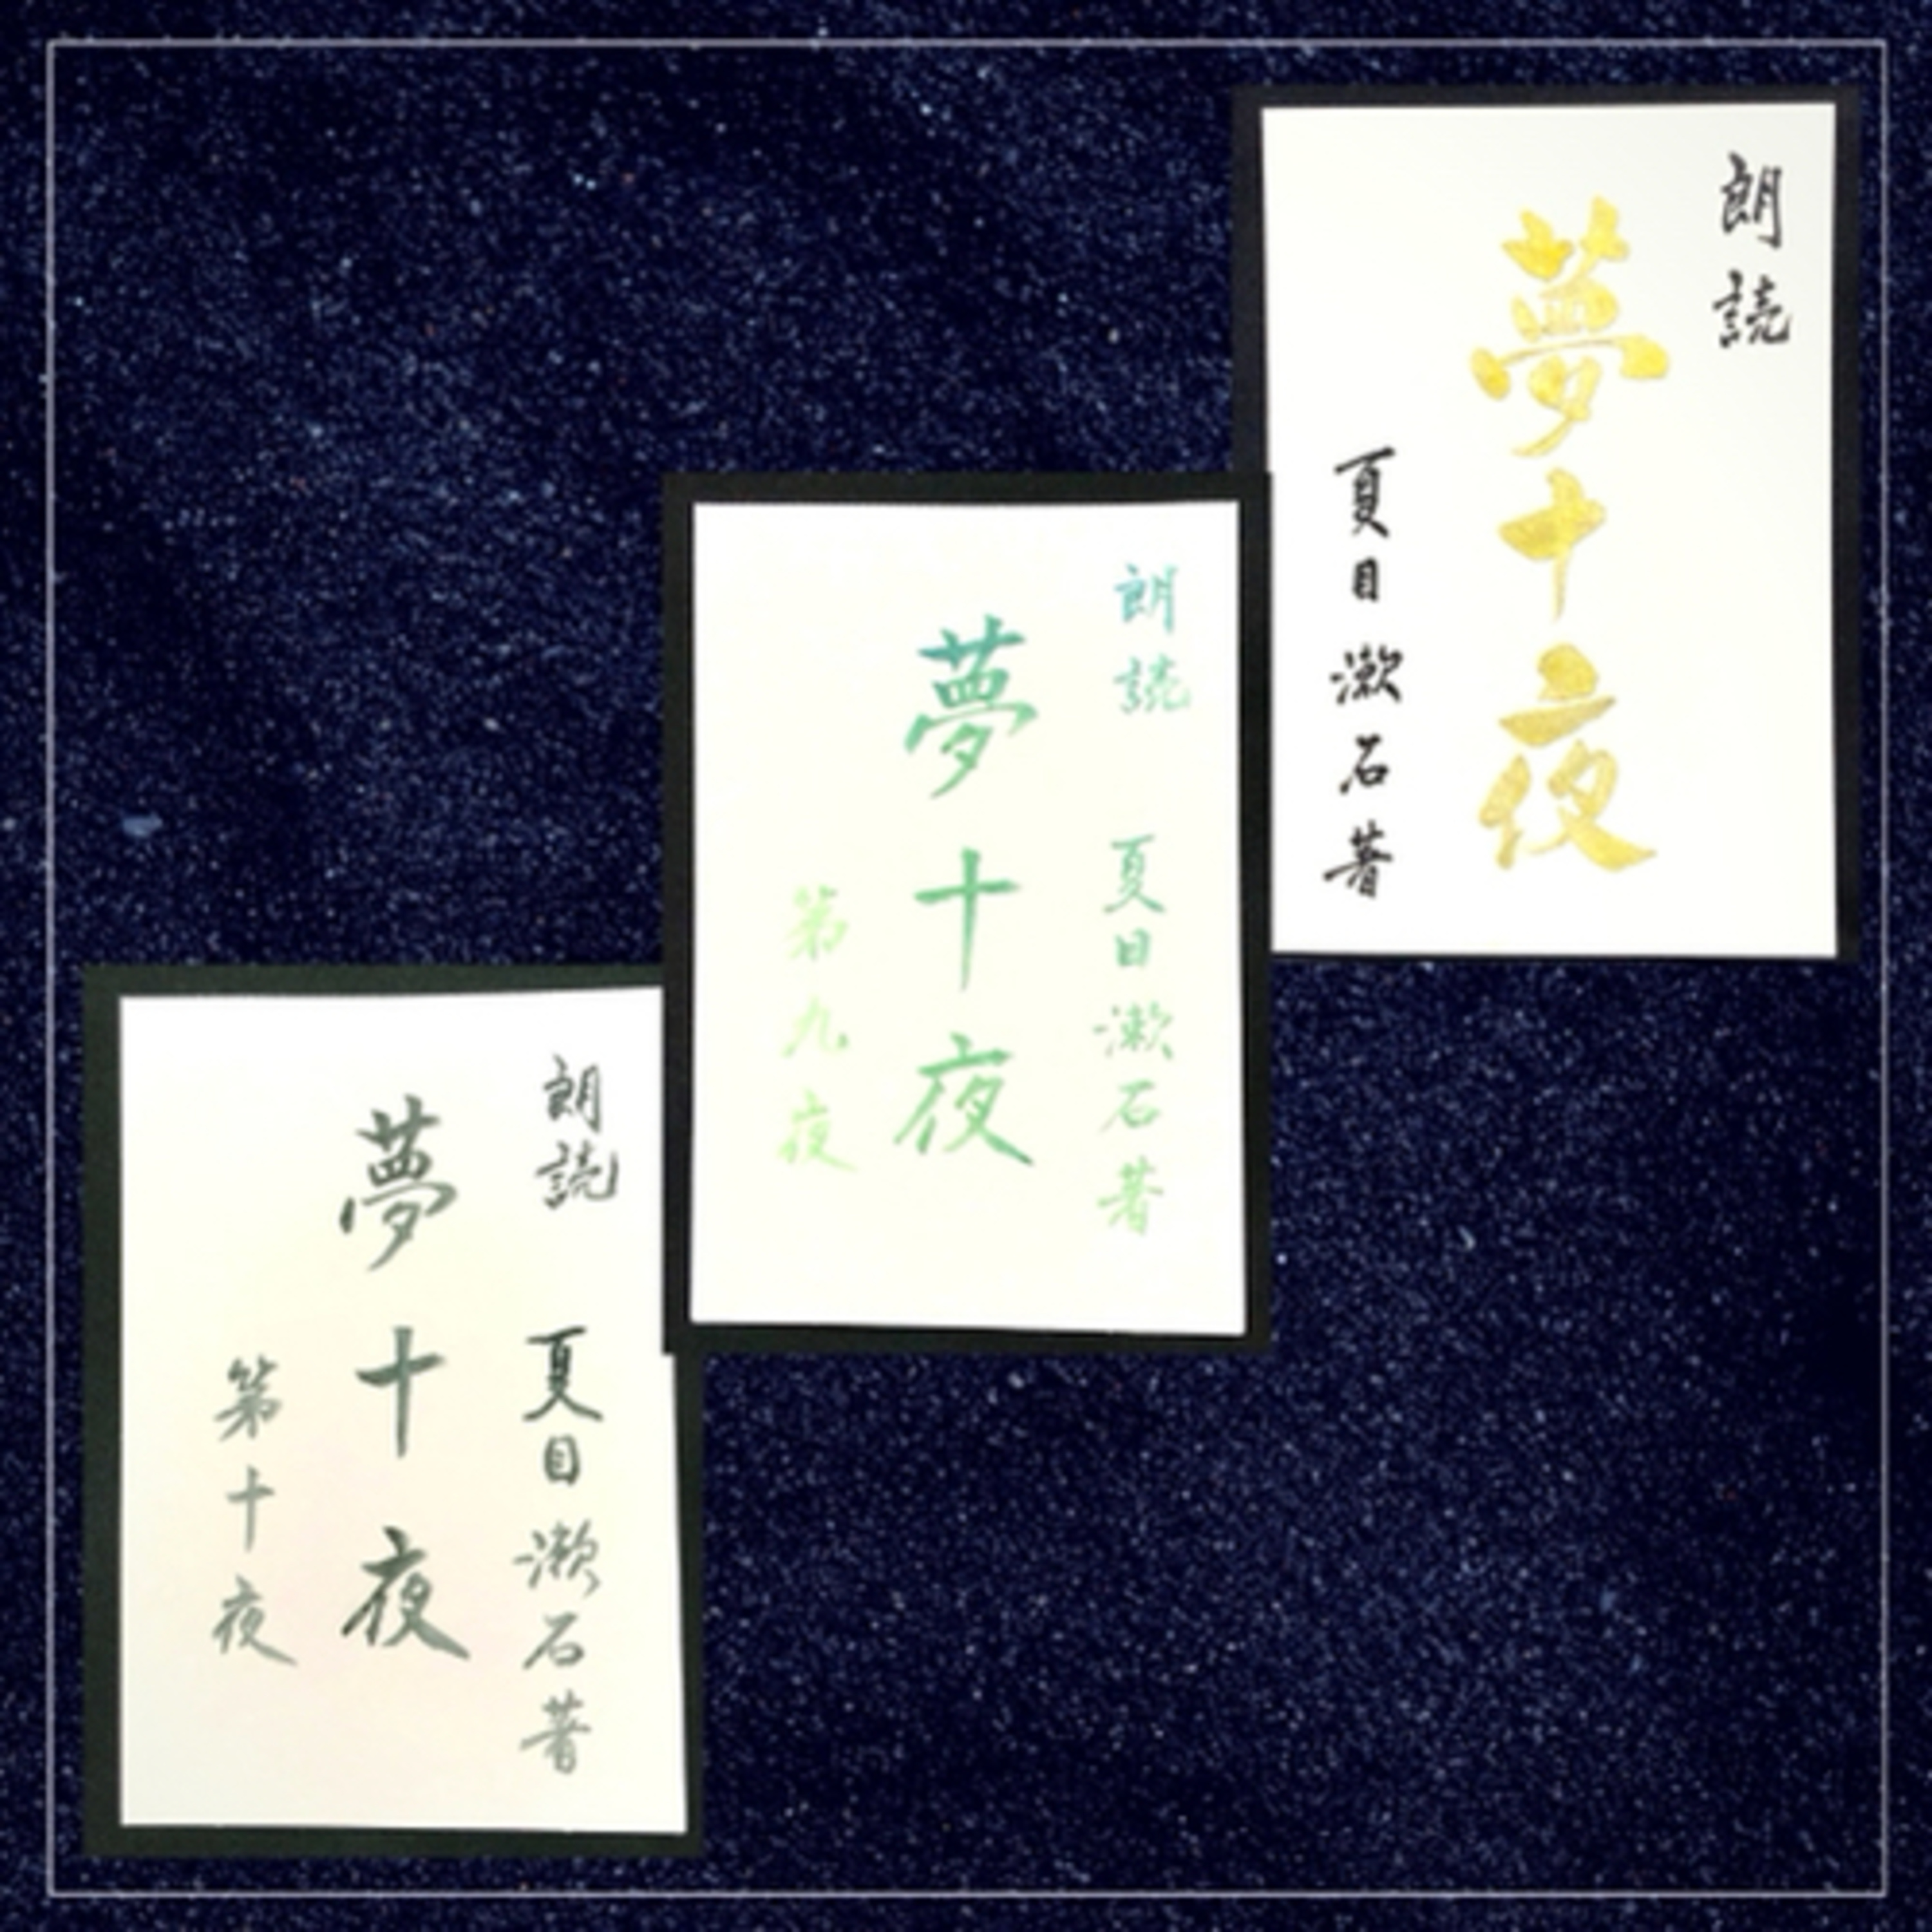 朗読
夢十夜
夏目漱石著
朗読 夏目漱石著
夢十夜
第九夜
朗読 夏目漱石著
夢十夜
第十夜